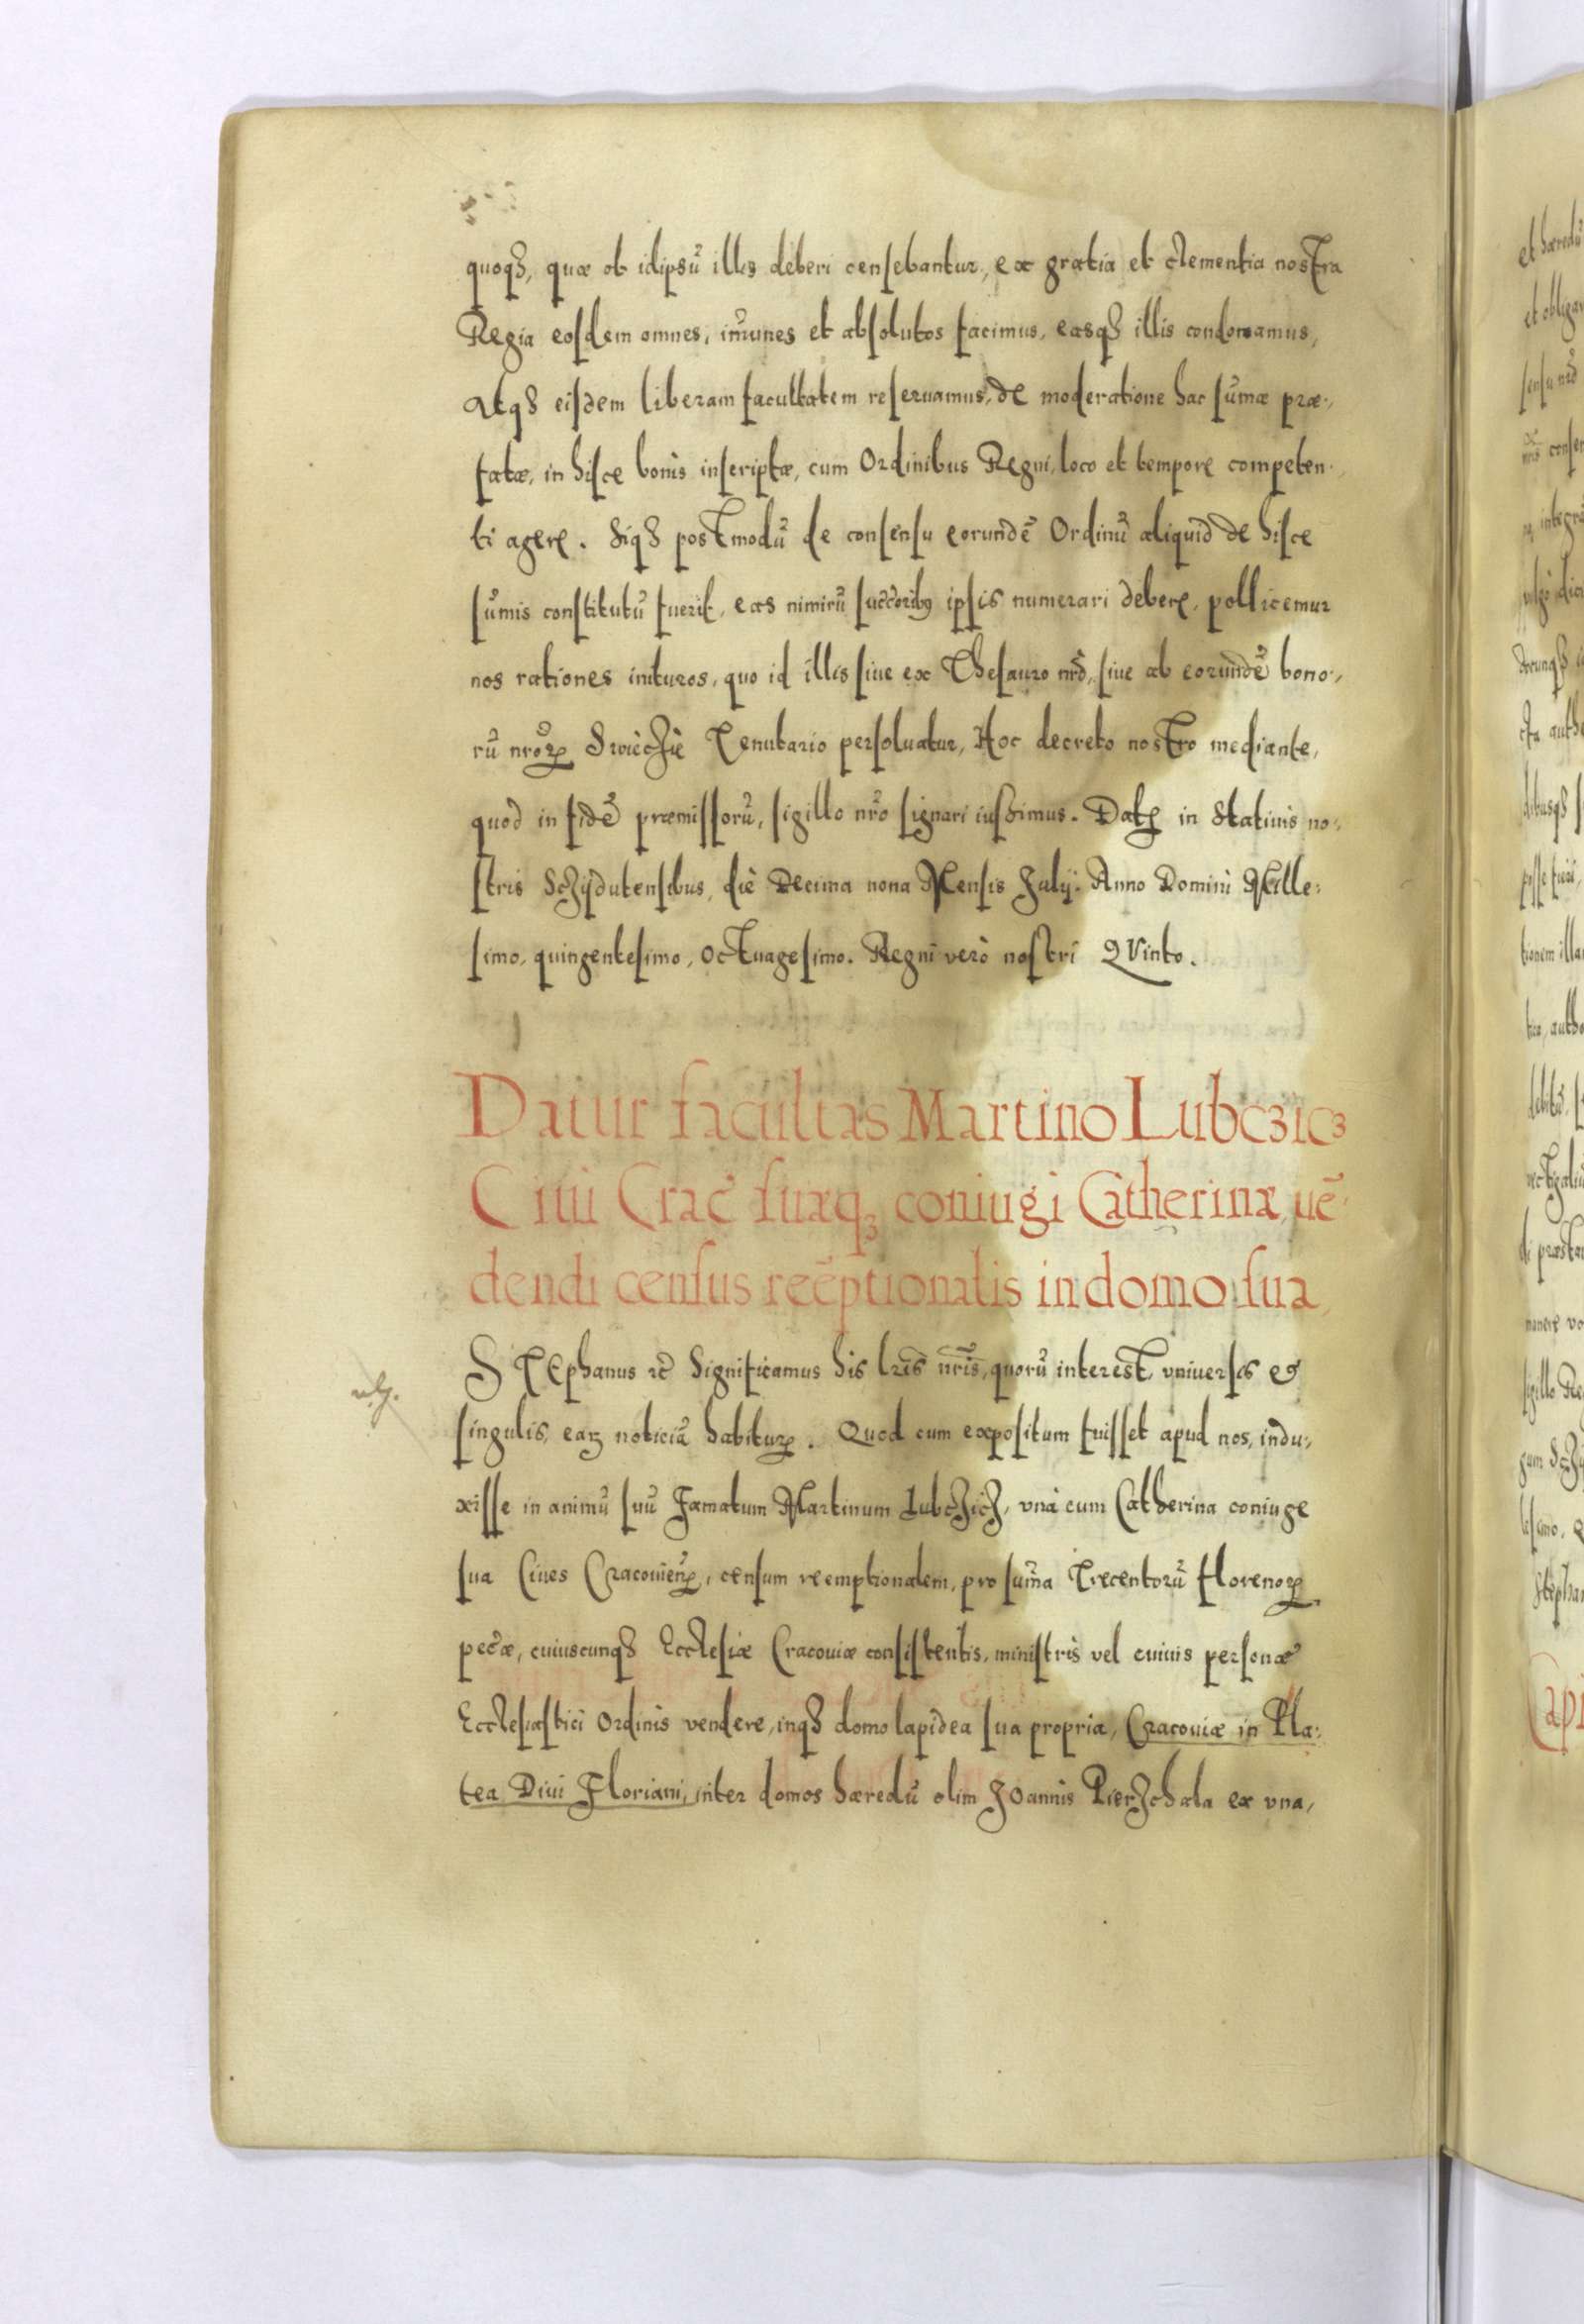 quoqȝ, quæ ob idipsū illis deberi censebantur, ex gratia et clementia nostra
Regia eosdem omnes, im̄unes et absolutos facimus, easqȝ illis condonamus,
Atqȝ eisdem liberam facultatem reseruamus, de moderatione hac sum̄æ præ-
fatæ, in hisce bonis inscriptæ, cum Ordinibus Regni, loco et tempore competen-
ti agere. Siqȝ postmodū de consensu eorundē Ordinū aliquid de hisce
sum̄is constitutū fuerit, eas nimirū succōribꝰ ipsis numerari debere, pollicemur
nos rationes inituros, quo id illis siue ex Thesauro nrō, siue ab eorundē bono-
rū nrōꝝ Swiecziē Tenutario persoluatur, Hoc decreto nostro mediante,
quod in fidē præmissorū, sigillo nrō signari iussimus. Datꝭ in Statiuis no-
stris Sczydutensibus, die Decima nona Mensis Julij. Anno Domini Mille-
simo, quingentesimo, Octuagesimo. Regni vero nostri QVinto.
Datur facultas Martino Lubczicz
Ciui Crac̄ suæqȝ coniugi Catherinæ, uē-
dendi census reēptionalis in domo sua
STEphanus rc̄ Significamus his lrīs nrīs, quorū interest, vniuersis et
singulis, earȝ noticiā habituꝝ. Quod cum expositum fuisset apud nos, indu-
xisse in animū suū Famatum Martinum Lubczicz, vna cum Catherina coniuge
sua Ciues Cracovien̄ꝭ, censum reemptionalem, pro sum̄a Trecentorū florenoꝝ
pec̄æ, cuiuscunqȝ Ecclesiæ Cracouiæ consistentis, ministris vel cuiuis personæ
Ecclesiastici Ordinis vendere, inqȝ domo lapidea sua propria, Cracouiæ in Pla-
tea Diui Floriani, inter domos hæredū olim Joannis Pierzchala ex vna,